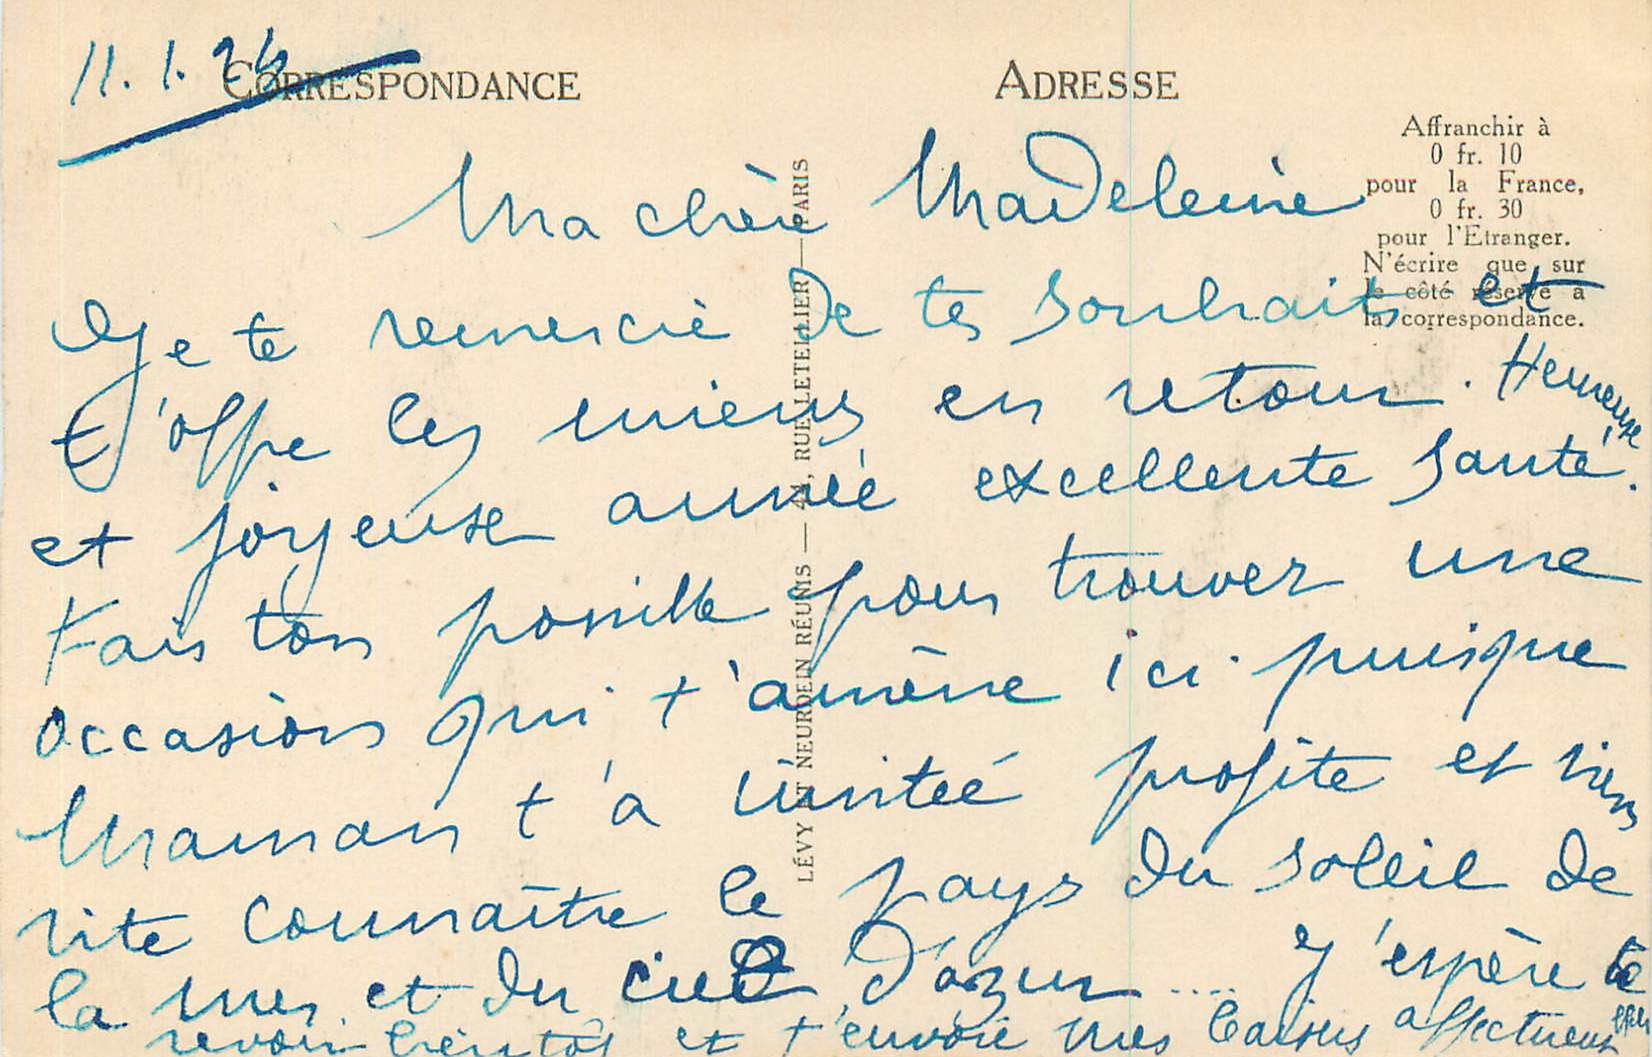 11. 1. 26
CORRESPONDANCE
ADRESSE
Affranchir à
0 fr. 10
pour la France,
0 fr. 30
pour l'Etranger.
N'écrire que sur
le côté réservé à
la correspondance.
LÉVY ET NEURDEIN RÉUNIS — 44, RUE LETELLIER — PARIS
Ma chère Madeleine
Je te remercie de tes souhaits et
t'offre les miens en retour. Heureuse
et joyeuse année excellente santé.
Fais ton possible pour trouver une
occasion qui t'amène ici puisque
Maman t'a invitée profite et viens
vite connaître le pays du soleil de
la mer et du ciel d'azur.... J'espère te
revoir bientôt et t'envoie mes baisers affectueux